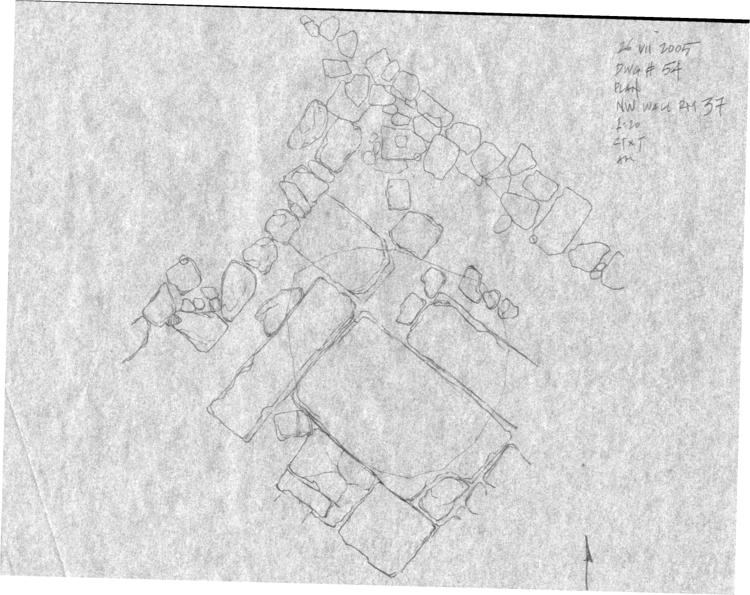 26 VII 2005
DWG # 54
PLAN
NW WALL RM 37
1:20